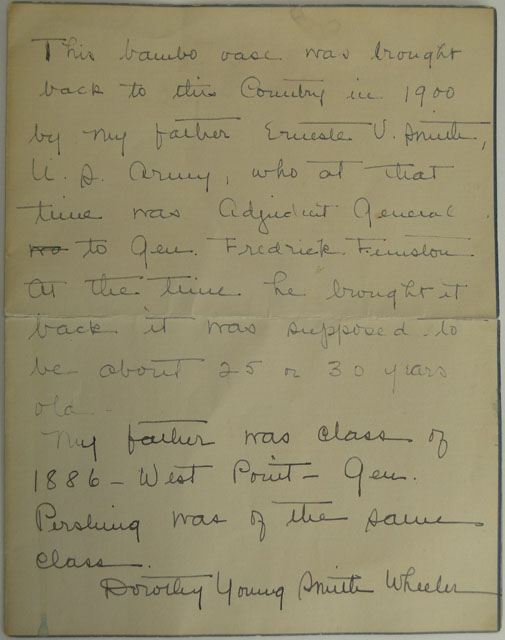 This bambo vase was brought
back to this Country in 1900
by my father Erneste V. Smith,
U. S. Army, who at that
time was Adjudut General
to Gen. Fredrick Funston.
At the time he brought it
back it was supposed to
be about 25 or 30 years
old.
My father was class of
1886 - West Point - Gen.
Pershing was of the same
class.
Dorothy Young Smith Wheeler